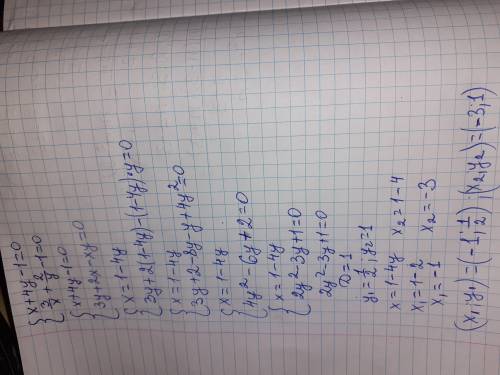 { x+4y-1=0
3/x + 2/y -1=0
{ x+4y-1=0
3y+2x-xy=0
{ x=1-4y
3y+2(1-4y)-(1-4y)*y=0
{ x=1-4y
3y+2-8y-y+4y²=0
{ x=1-4y
4y²-6y+2=0
{ x=1-4y
2y²-3y+1=0
2y²-3y+1=0
D=1
y₁=1/2; y₂=1
x=1-4y x₂=1-4
x=1-2 x₂=-3
x₁=-1
(x₁,y₁)=(-1;1/2);(x₂,y₂)=(-3;1)